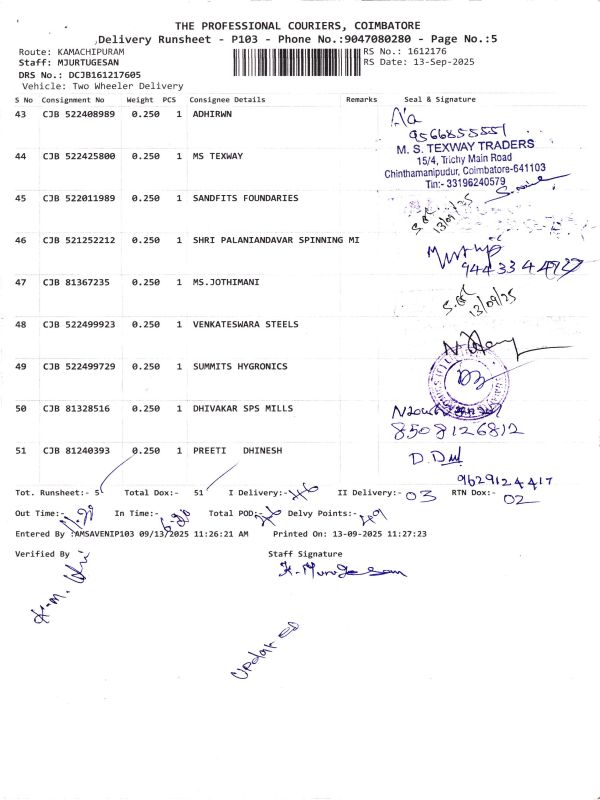 THE PROFESSIONAL COURIERS, COIMBATORE
Delivery Runsheet - P103 - Phone No.:9047080280 - Page No.:5
Route: KAMACHIPURAM RS No.: 1612176
Staff: MJURTUGESAN RS Date: 13-Sep-2025
DRS No.: DCJB161217605
Vehicle: Two Wheeler Delivery
S No Consignment No Weight PCS Consignee Details Remarks Seal & Signature
43 CJB 522408989 0.250 1 ADHIRWN
9566855551
44 CJB 522425800 0.250 1 MS TEXWAY
M. S. TEXWAY TRADERS
15/4, Trichy Main Road
Chinthamanipudur, Coimbatore-641103
Tin:- 33196240579
45 CJB 522011989 0.250 1 SANDFITS FOUNDARIES
13/09/25
46 CJB 521252212 0.250 1 SHRI PALANIANDAVAR SPINNING MI
47 CJB 81367235 0.250 1 MS.JOTHIMANI
13/09/25
48 CJB 522499923 0.250 1 VENKATESWARA STEELS
49 CJB 522499729 0.250 1 SUMMITS HYGRONICS
50 CJB 81328516 0.250 1 DHIVAKAR SPS MILLS
8508126812
51 CJB 81240393 0.250 1 PREETI DHINESH
9629124417
Tot. Runsheet:- 5 Total Dox:- 51 I Delivery:- 46 II Delivery:- 03 RTN Dox:- 02
Out Time:- 11.30 In Time:- 6.30 Total POD:- 46 Delvy Points:- 49
Entered By :AMSAVENIP103 09/13/2025 11:26:21 AM Printed On: 13-09-2025 11:27:23
Verified By Staff Signature
K. Murugesan
updated